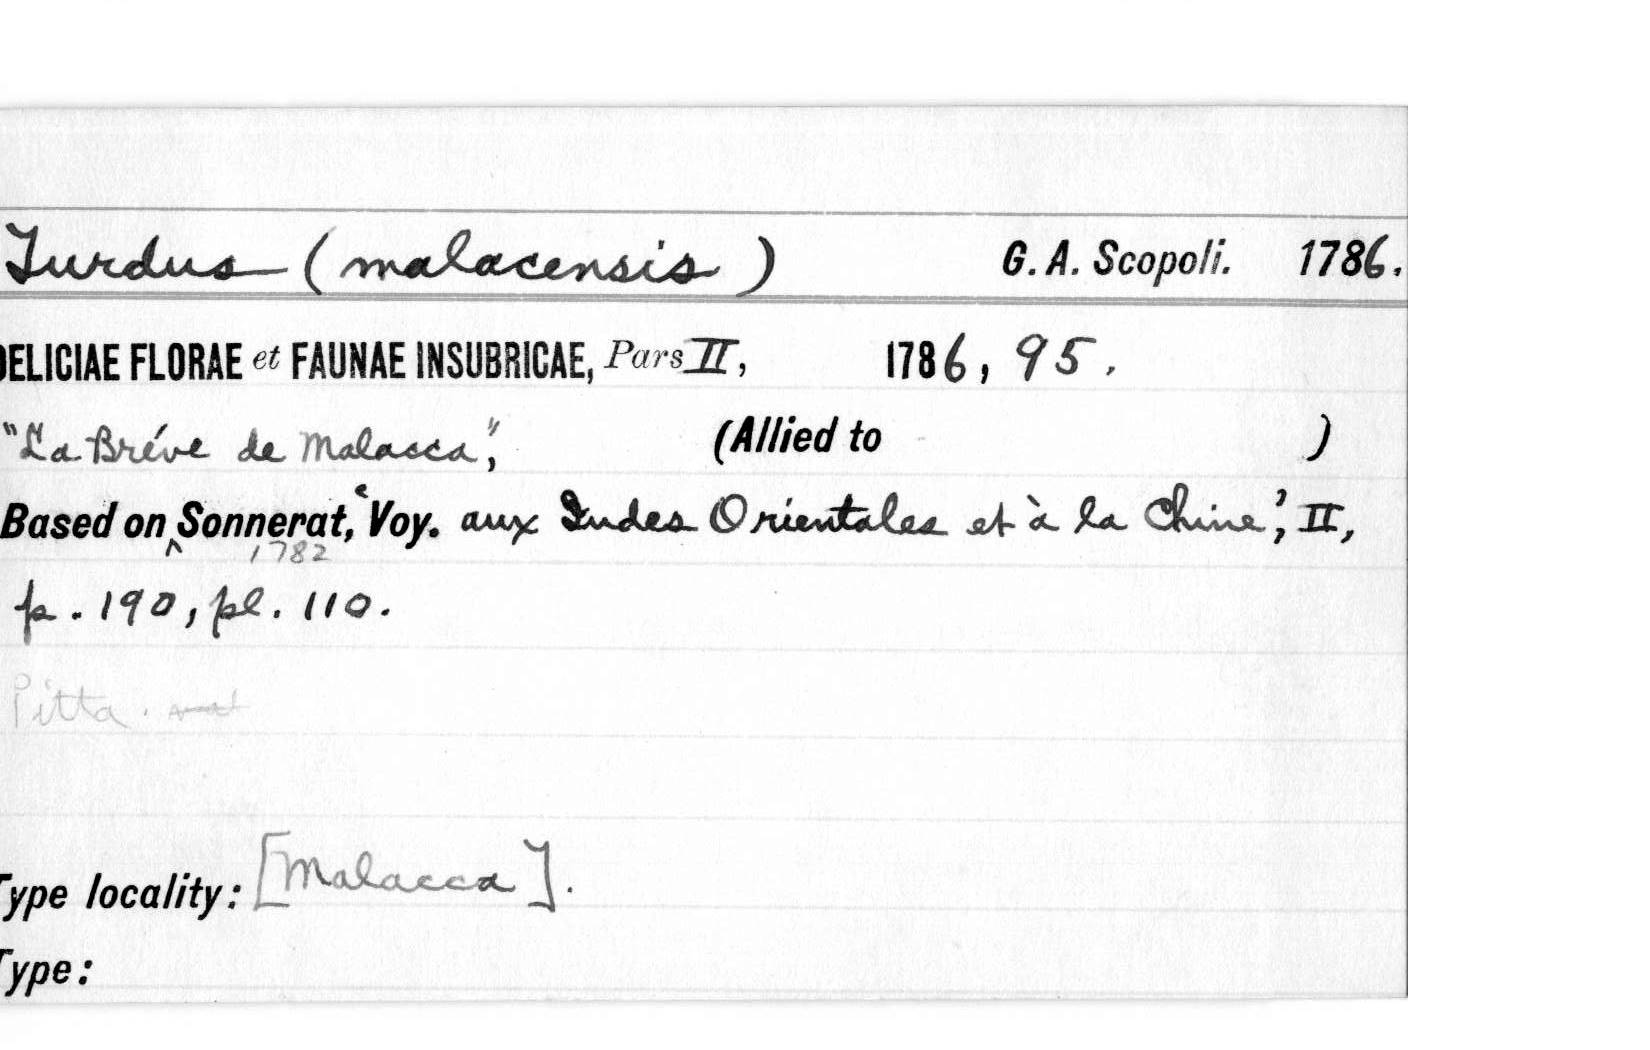 Turdus (malacensis) G. A. Scopoli. 1786.
DELICIAE FLORAE et FAUNAE INSUBRICAE, Pars II, 1786, 95.
"La Bréve de Malacca", (Allied to )
Based on Sonnerat, 'Voy. aux Indes Orientales et à la Chine', II,
1782
p. 190, pl. 110.
Pitta.
Type locality: [Malacca].
Type: